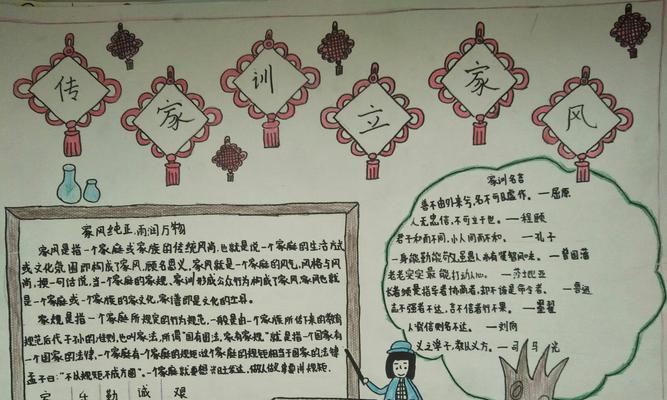 传家训立家风
家风纯正，雨润万物
家风是指一个家庭或家族的传统风尚，也就是说一个家庭的生活方式
或文化氛围即构成了家风，顾名思义，家风就是一个家庭的风气，风格与风
尚，换一句话说，当一个家庭的家规、家训形成公众行为构成了家风，家风也就
是一个家庭或一个家族的家文化，家借即是文化的工具。
家规是指一个家庭所规定的行为规范，一般是由一个家族所传下来的教育
规范后代子孙的准则，也叫家法，所谓"国有国法，家有家规"就是指一个国家有
一个国家的法律，一个家庭有一个家庭的规矩这个家庭的规矩相当于国家的法律
孟子曰："不以规矩不成方圆"。一个家庭就要想兴旺发达，做人做
勤 诚
家训名言
善不由外来兮，名不可以虚作。—屈原
人无忠信，不可立于世。—程颐
君子和而不同，小人同而不和。—孔子
—曾国藩
打动人心。—莎士比亚
长者须是指导者协商者，却不该是命令者。—鲁迅
志不强者不达，言不信者行不果。—墨翟
—刘向
教以义方。—司马光